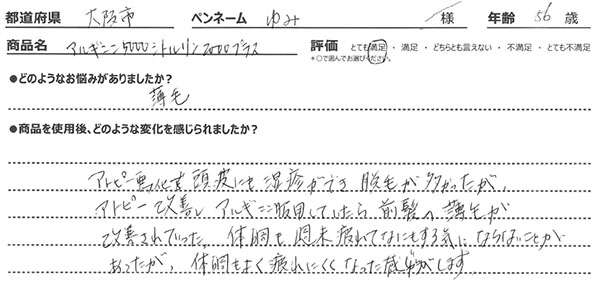 都道府県 大阪市 ペンネーム ゆみ 様 年齢 56 歳
商品名 アルギニン5000シトルリン2000プラス 評価 とても満足・満足・どちらとも言えない・不満足・とても不満足
*○で囲んでお選びください。
●どのようなお悩みがありましたか?
薄毛
●商品を使用後、どのような変化を感じられましたか?
アトピー悪化で頭皮にも湿疹ができ 脱毛が多かったが、
アトピー改善し アルギニン服用していたら 前髪の薄毛が
改善されていった。 体調も 週末疲れてなにもする気にならないことが
あったが、 体調もよく疲れにくくなった感じがします